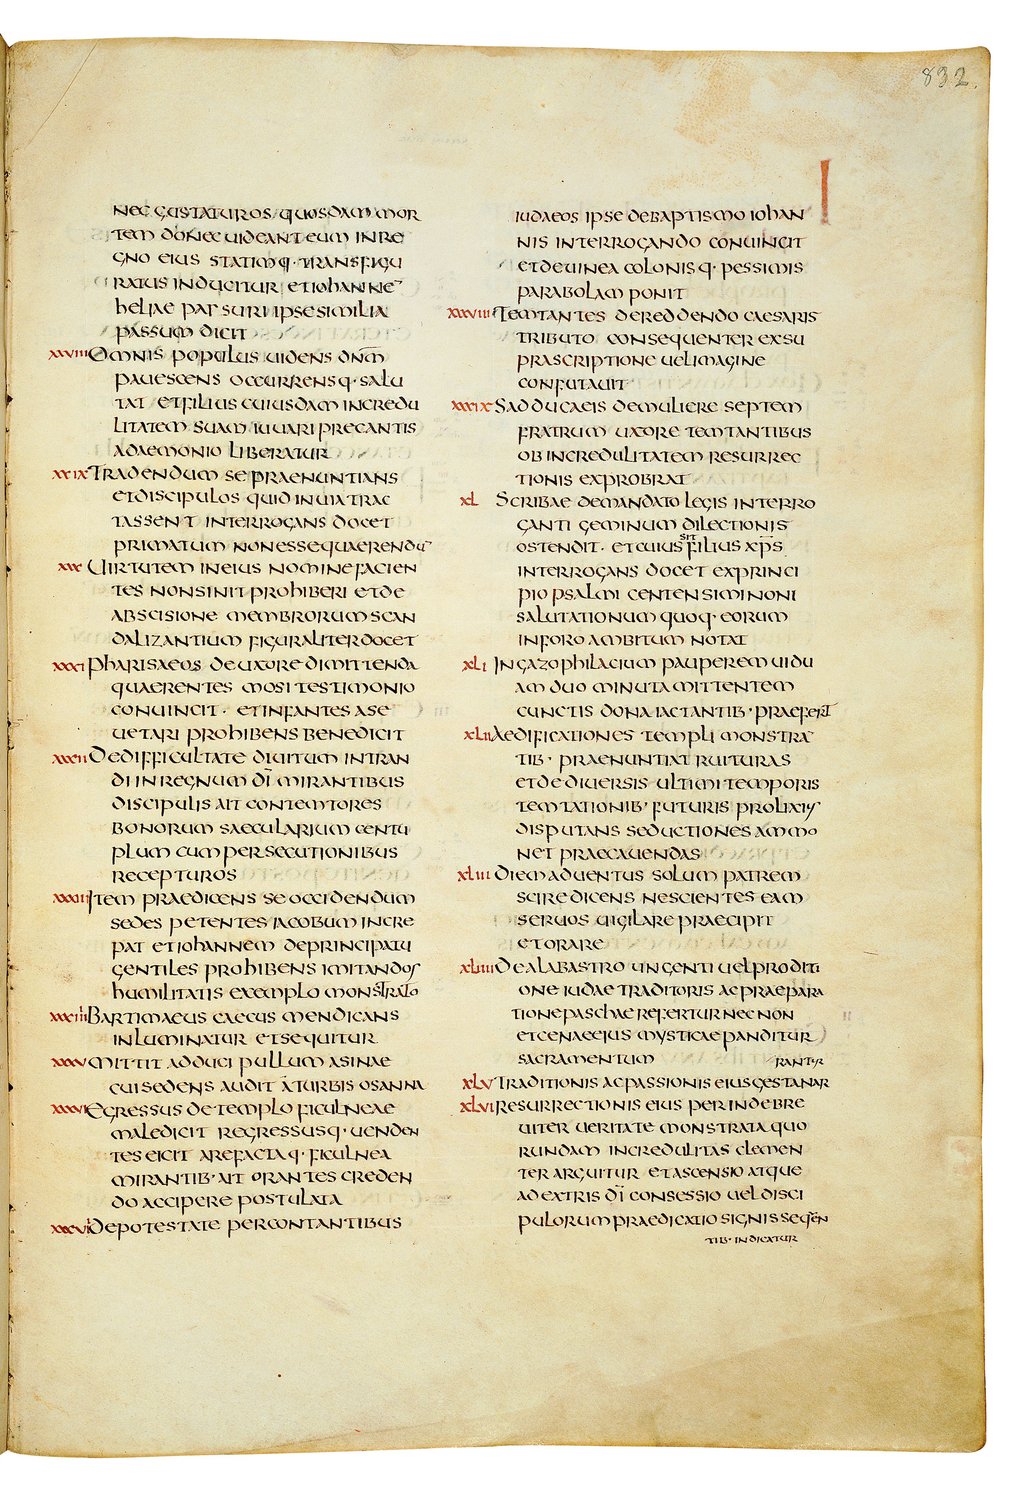 832.
NEC GUSTATUROS QUOSDAM MOR
TEM DONEC UIDEANT EUM IN RE
GNO EIUS STATIMQ· TRANSFIGU
RATUS INDUCITUR ET IOHANNE̅
HELIAE PAR SURI IPSE SIMILIA
PASSUM DICIT
XXVIII OMNIS POPULUS UIDENS DN̅M
PAUESCENS OCCURRENSQ· SALU
TAT ET FILIUS CUIUSDAM INCREDU
LITATEM SUAM IUUARI PRECANTIS
A DAEMONIO LIBERATUR
XXIX TRADENDUM SE PRAENUNTIANS
ET DISCIPULOS QUID IN UIA TRAC
TASSENT INTERROGANS DOCET
PRIMATUM NON ESSE QUAERENDU̅
XXX UIRTUTEM IN EIUS NOMINE FACIEN
TES NON SINIT PROHIBERI ET DE
ABSCISIONE MEMBRORUM SCAN
DALIZANTIUM FIGURALITER DOCET
XXXI PHARISAEOS DE UXORE DIMITTENDA
QUAERENTES MOSI TESTIMONIO
CONUINCIT· ET INFANTES A SE
UETARI PROHIBENS BENEDICIT
XXXII DE DIFFICULTATE DIUITUM INTRAN
DI IN REGNUM DI̅ MIRANTIBUS
DISCIPULIS AIT CONTEMTORES
BONORUM SAECULARIUM CENTU
PLUM CUM PERSECUTIONIBUS
RECEPTUROS
XXXIII ITEM PRAEDICENS SE OCCIDENDUM
SEDES PETENTES IACOBUM INCRE
PAT ET IOHANNEM DE PRINCIPATU
GENTILES PROHIBENS IMITANDOS
HUMILITATIS EXEMPLO MONSTRATO
XXXIIII BARTIMAEUS CAECUS MENDICANS
INLUMINATUR ET SEQUITUR
XXXV MITTIT ADDUCI PULLUM ASINAE
CUI SEDENS AUDIT A TURBIS OSANNA
XXXVI EGRESSUS DE TEMPLO FICULNEAE
MALEDICIT REGRESSUSQ· UENDEN
TES EICIT AREFACTAQ· FICULNEA
MIRANTIB· AIT ORANTES CREDEN
DO ACCIPERE POSTULATA
XXXVII DE POTESTATE PERCONTANTIBUS
IUDAEOS IPSE DE BAPTISMO IOHAN
NIS INTERROGANDO CONUINCIT
ET DE UINEA COLONISQ· PESSIMIS
PARABOLAM PONIT
XXXVIII TEMTANTES DE REDDENDO CAESARIS
TRIBUTO CONSEQUENTER EX SU
PRASCRIPTIONE UEL IMAGINE
CONFUTAUIT
XXXIX SADDUCAEIS DE MULIERE SEPTEM
FRATRUM UXORE TEMTANTIBUS
OB INCREDULITATEM RESURREC
TIONIS EXPROBRAT
XL SCRIBAE DE MANDATO LEGIS INTERRO
GANTI GEMINUM DILECTIONIS
OSTENDIT· ET CUIUS SIT FILIUS XP̅S
INTERROGANS DOCET EX PRINCI
PIO PSALMI CENTENSIMI NONI
SALUTATIONUM QUOQ· EORUM
IN FORO AMBITUM NOTAT
XLI IN GAZOPHILACIUM PAUPEREM UIDU
AM DUO MINUTA MITTENTEM
CUNCTIS DONA IACTANTIB· PRAEFERT
XLII AEDIFICATIONES TEMPLI MONSTRA̅
TIB· PRAENUNTIAT RUITURAS
ET DE DIUERSIS ULTIMI TEMPORIS
TEMTATIONIB· FUTURIS PROLIXIUS
DISPUTANS SEDUCTIONES AMMO
NET PRAECAUENDAS
XLIII DIEM ADUENTUS SOLUM PATREM
SCIRE DICENS NESCIENTES EAM
SERUOS UIGILARE PRAECIPIT
ET ORARE
XLIIII DE ALABASTRO UNGENTI UEL PRODITI
ONE IUDAE TRADITORIS AC PRAEPARA
TIONE PASCHAE REFERTUR NEC NON
ET CENAE EIUS MYSTICAE PANDITUR
SACRAMENTUM
RANTUR
XLV TRADITIONIS AC PASSIONIS EIUS GESTA NAR
XLVI RESURRECTIONIS EIUS PER INDE BRE
UITER UERITATE MONSTRATA QUO
RUNDAM INCREDULITAS CLEMEN
TER ARGUITUR ET ASCENSIO ATQUE
AD EXTRIS DI̅ CONSESSIO UEL DISCI
PULORUM PRAEDICATIO SIGNIS SEQUEN
TIB· INDICATUR